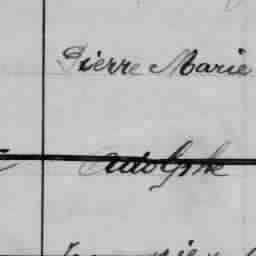 Pierre Marie
Adolphe